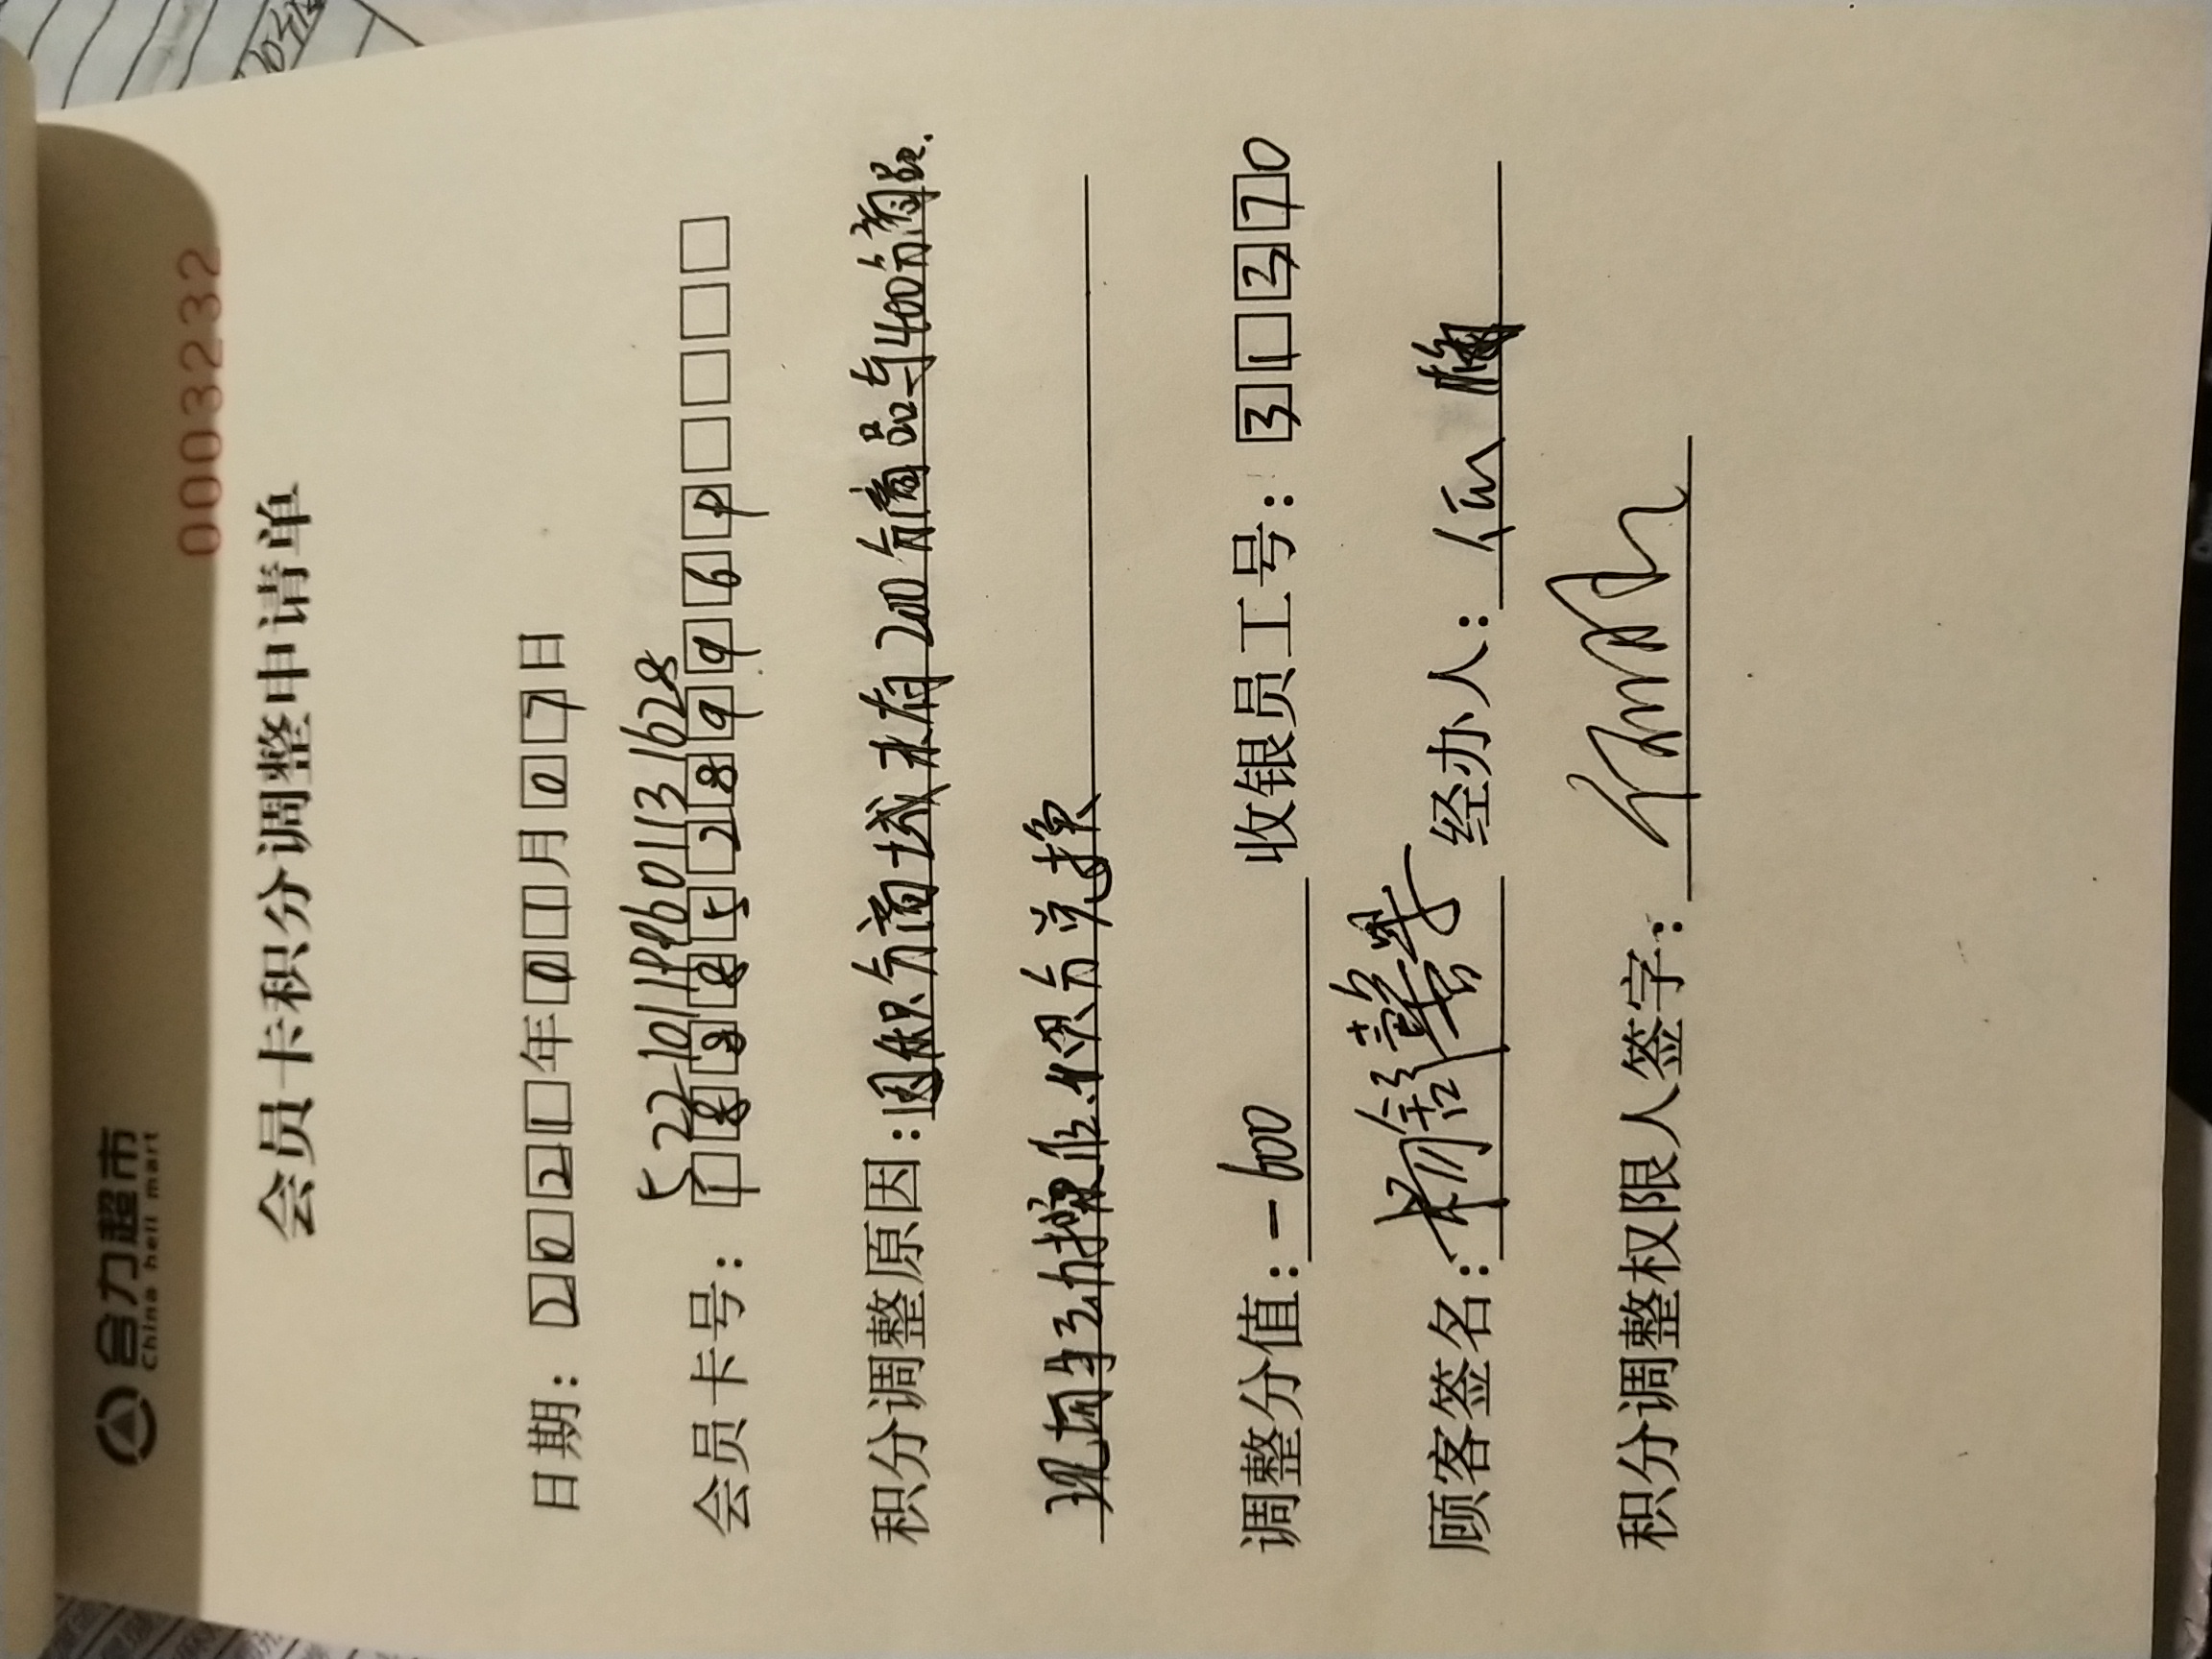 合力超市
China heli mart
0003232
会员卡积分调整申请单
日期：2021年01月07日
522101199601131628
会员卡号：188852899
积分调整原因：因积分商城未有200分商品与400分商品.
现用手动操作积分兑换
调整分值：-600 收银员工号：31370
顾客签名： 经办人：伍梅
积分调整权限人签字：